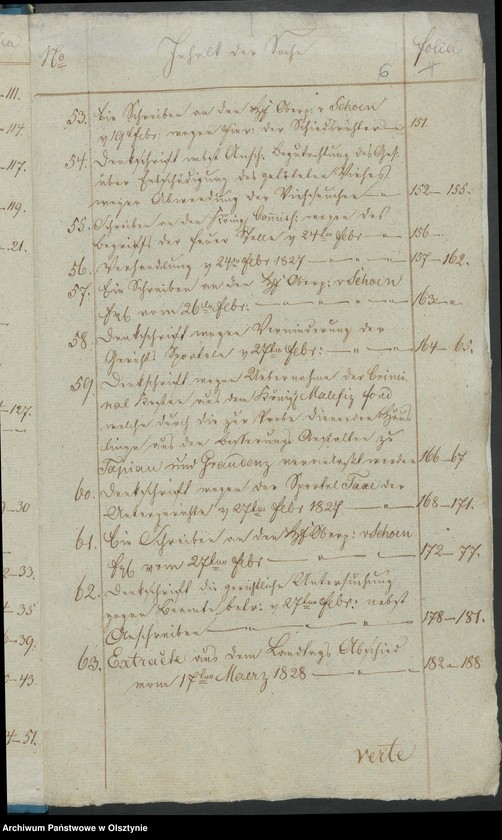 No Inhalt der Sache folia
6
53. Ein Schreiben an den HE Oberp: v Schoen
v 19t Febr: wegen der Schiedsrichter 151.
54. Denkschrift nebst Ansch. Begutachtung des Ges.
über Entschädigung des getödteten Viehes
wegen Abwendung der Viehseuchen 152–155.
55. Schreiben an den Königl Commiss: wegen des
Begriffs der Feuer Stelle v 24ten Febr 156
56. Verhandlung v 24ten Febr 1827 157–162.
57. Ein Schreiben an den HE Oberp: v Schoen
vom 26ten Febr: 163
58. Denkschrift wegen Verminderung der
Gerichtl Sporteln v 27ten Febr: 164–65.
59. Denkschrift wegen Uebernahme der Crimi
nal Kosten aus dem Königl Malefiz fond
welche durch die zur Probe dienenden Häus
linge aus den Besserungs Anstalten zu
Tapiau und Graudenz veranlasst werden 166–67
60. Denkschrift wegen der Sportel Taxe der
Untergerichte v 27ten Febr 1827 168–171.
61. Ein Schreiben an den HE Oberp: v Schoen
vom 27ten Febr 172–77.
62. Denkschrift die gerichtliche Untersuchung
gegen Beamte betr: v 27ten Febr: nebst
Anschreiben 178–181.
63. Extracte aus dem Landtags Abschied
vom 17ten Maerz 1828 182–188
verte
111.
114.
117.
119.
21.
127.
30
33.
35
39.
43.
51.
Archiwum Państwowe w Olsztynie